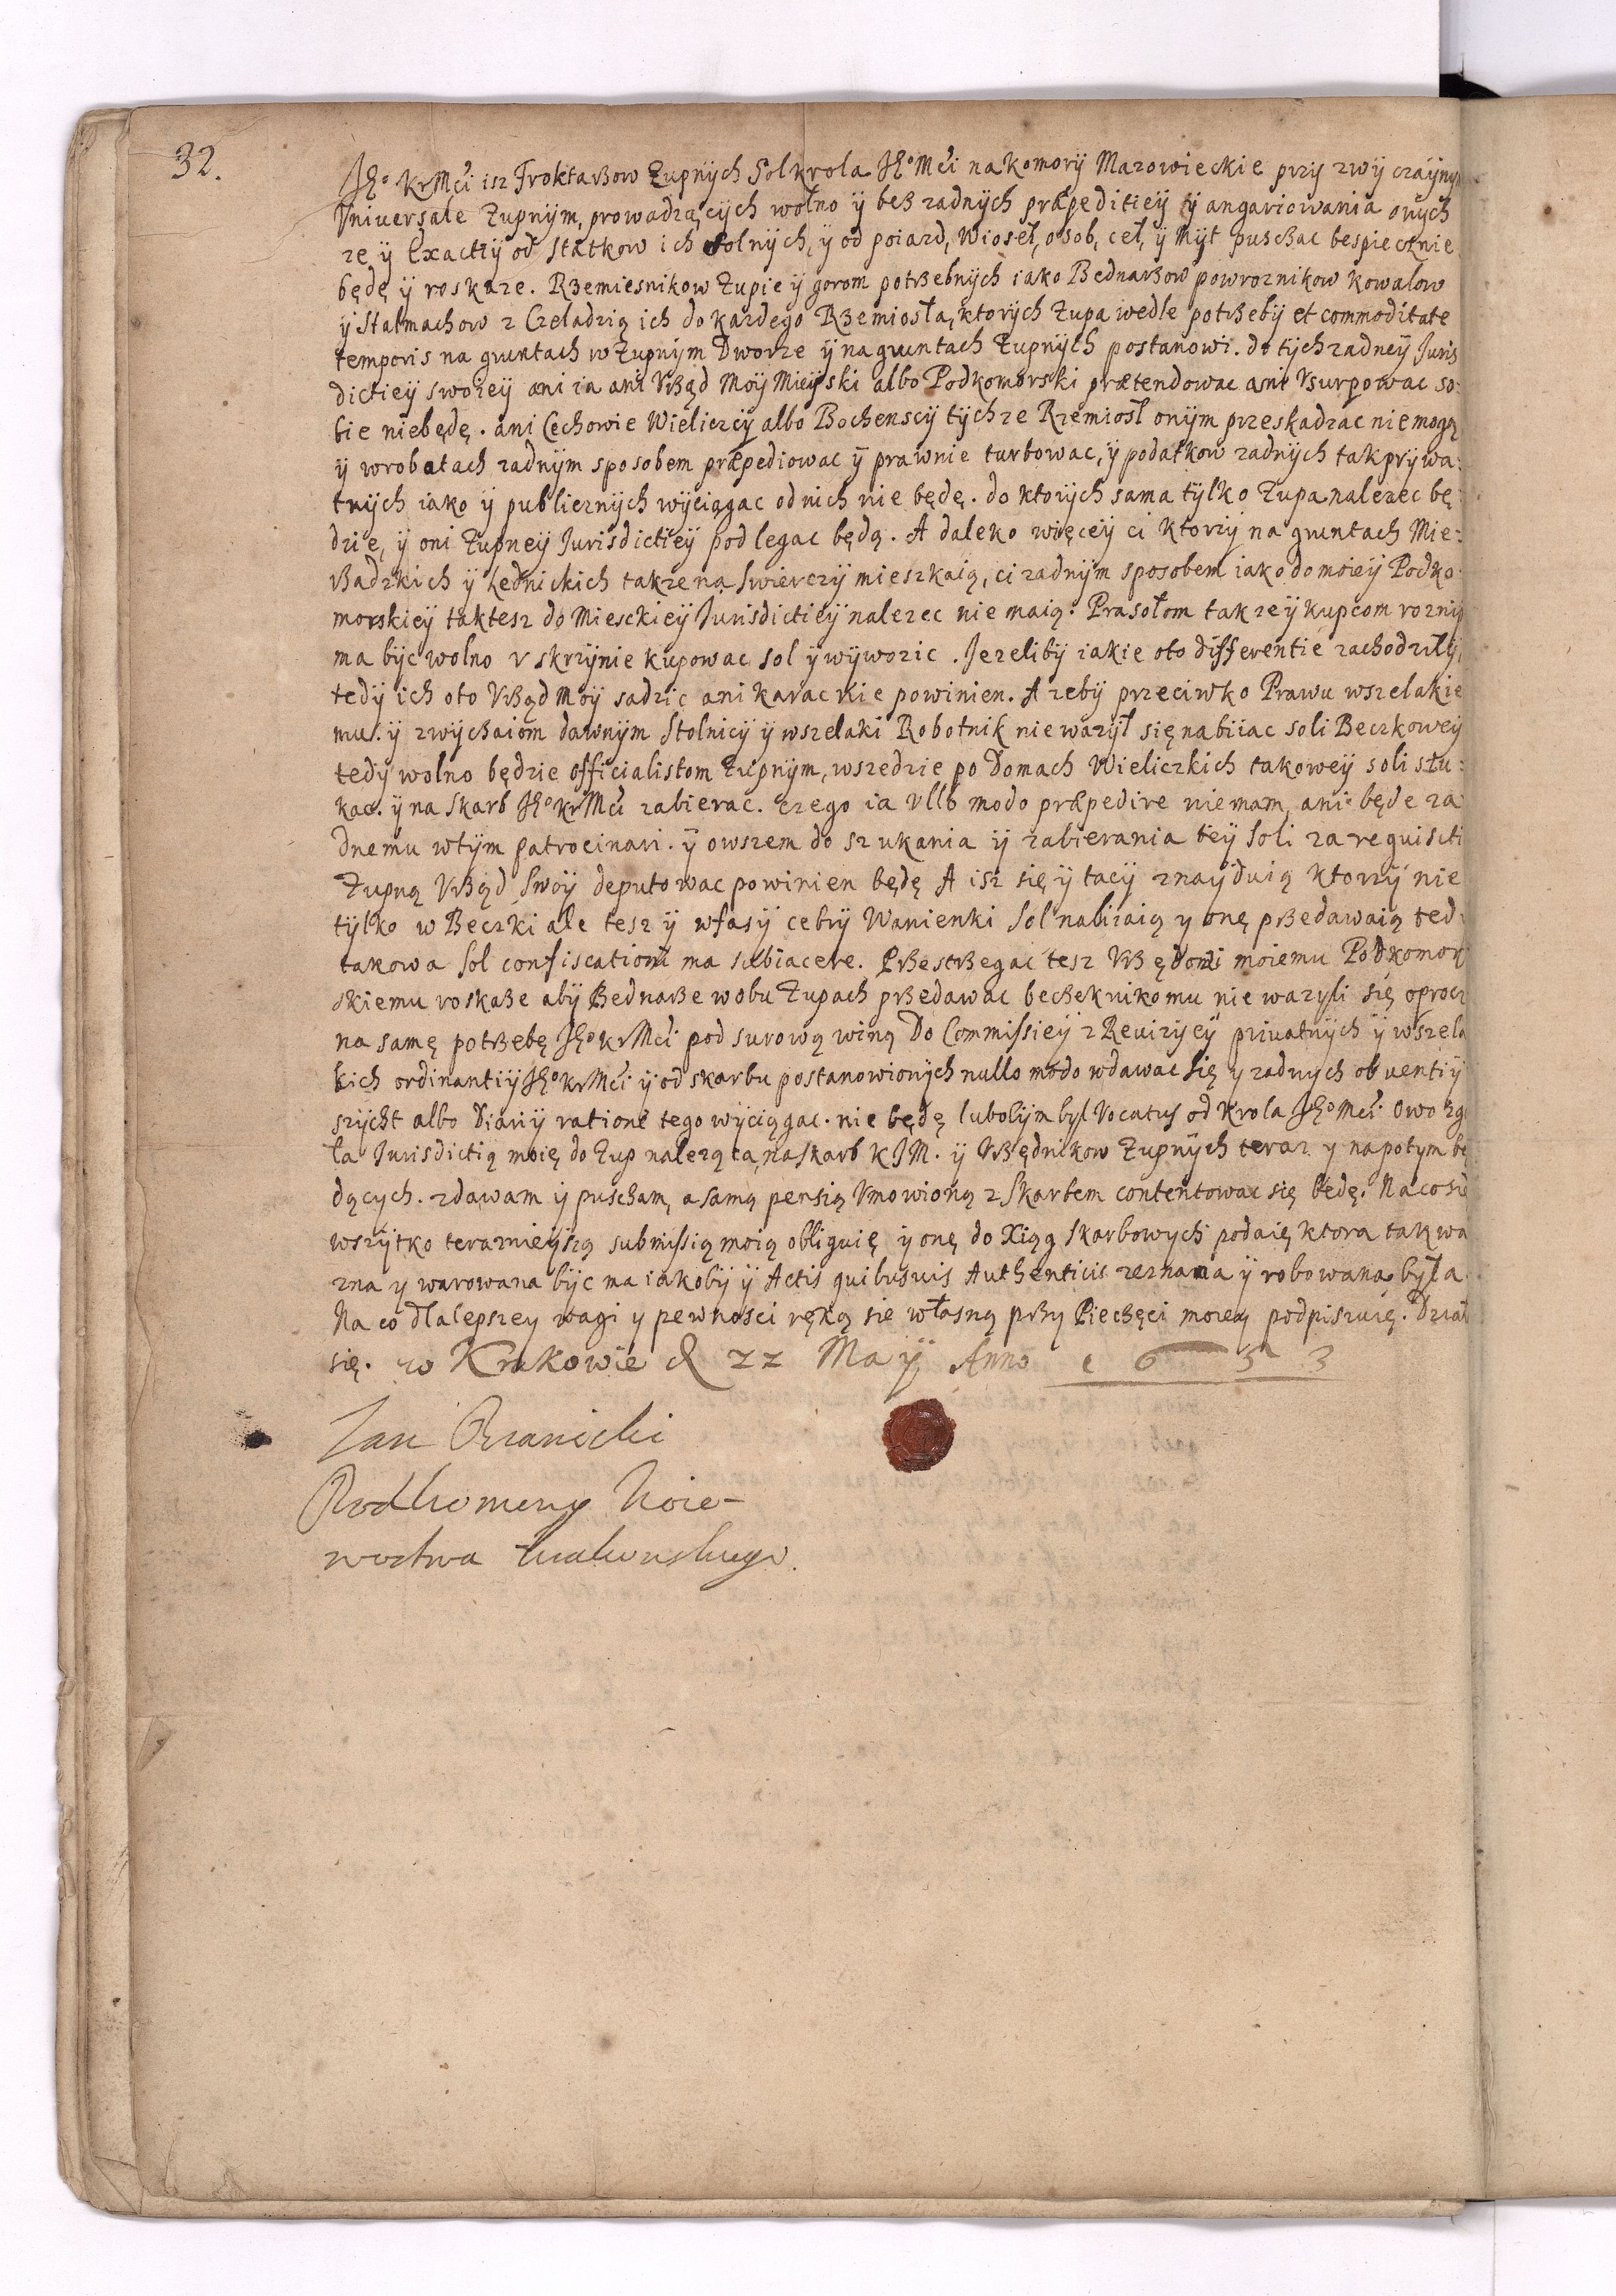 32.
JEº KrMći isz Froktarzow Zupnÿch Sol krola JEº Mći na komorÿ Mazowieckie przÿ zwÿczaÿnÿm
Vniversale Zupnÿm, prowadzącÿch wolno ÿ bez zadnÿch præpeditieÿ ÿ angariowania onÿch
ze ÿ Exactiÿ od Statkow ich Solnÿch, ÿ od poiazd, Wioseł, osob, ceł, ÿ Mÿt puszczac bespiecznie
będę ÿ roskaze. Rzemiesnikow Zupie ÿ gorom potrzebnÿch iako Bednarzow powroznikow kowalow
ÿ Stalmachow z Czeladzią ich do kazdego Rzemiosła, ktorÿch Zupa wedle potrzebÿ et commoditate
temporis na gruntach w Zupnÿm Dworze ÿ na gruntach Zupnÿch postanowi. do tÿch zadneÿ Juris
dictieÿ swoieÿ ani ia ani Vrząd Moÿ Mieÿski albo Podkomorski prætendowac ani Vsurpowac so:
bie niebędę. ani Cechowie Wieliczcÿ albo Bochenscÿ tÿchze Rzemiosł onÿm przeskadzac nie mogą
ÿ w robotach zadnÿm sposobem præpediowac ÿ prawnie turbowac, ÿ podatkow zadnÿch tak prÿwa:
tnÿch iako ÿ publicznÿch wÿciągac od nich nie będę. do ktorÿch sama tÿlko Zupa nalezec bę:
dzie, ÿ oni Zupneÿ Jurisdictieÿ podlegac będą. A daleko więceÿ ci ktorzÿ na gruntach Mie:
rzadzkich ÿ Lednickich takze na Swierczÿ mieszkaią, ci zadnÿm sposobem iako do moieÿ Podko:
morskieÿ taktesz do Miesckieÿ Jurisdictieÿ nalezec nie maią. Prasołom takze ÿ kupcom roznÿ
ma bÿc wolno v skrzÿnie kupowac sol ÿ wÿwozic. Jezelibÿ iakie oto differentie zachodziłÿ,
tedÿ ich oto Vrząd Moÿ sadzic ani karac nie powinien. A zebÿ przeciwko Prawu wszelakie
mu ÿ zwÿczaiom dawnÿm Stolnicÿ ÿ wszelaki Robotnik nie wazÿł się nabiiac soli Beczkoweÿ
tedÿ wolno będzie officialistom Zupnÿm, wszedzie po Domach Wieliczkich takoweÿ soli szu:
kac. ÿ na Skarb JEº KrMći zabierac. czego ia Vllo modo præpedire nie mam, ani będe za
dnemu w tÿm patrocinari. ÿ owszem do szukania ÿ zabierania teÿ soli za requisiti
Zupną Vrząd Swoÿ deputowac powinien będę A isz się ÿ tacÿ znaÿduią ktorzÿ nie
tÿlko w Beczki ale tesz ÿ w fasÿ cebrÿ Wanienki Sol nabiiaią y onę przedawaią ted
takowa Sol confiscationi ma subiacere. Przestrzegac tesz Vrzędowi moiemu Podkomor
skiemu roskaze abÿ Bednarze w obu Zupach przedawac beczek nikomu nie wazyli się oprocz
na samę potrzebę JEº KrMći pod surową winą Do Commissieÿ z Reuizÿeÿ priuatnÿch ÿ wszela
kich ordinantiÿ JEº KrMći ÿ od skarbu postanowionÿch nullo modo wdawac się y zadnych obuentiÿ
szÿcht albo Diariÿ ratione tego wÿciągac. nie będę lubobÿm był Vocatus od krola JEº Mći. Owo zgo
ła Jurisdictią moię do Zup nalezącą, na skarb K JM. ÿ Vrzędnikow Zupnÿch teraz y napotym bę
dących. zdawam ÿ puscham, a samą pensią Vmowioną z Skarbem contentowac się będę. Na co się
wszÿtko teraznieÿszą submissią moią obliguię ÿ onę do Xiąg Skarbowych podaię ktora tak wa
zna y warowana bÿc ma iakobÿ ÿ Actis quibusuis Authenticis zeznana ÿ robowana była.
Na co dla lepszey wagi y pewnosci ręką sie własną przy Pieczęci moiey podpiszuię. Dział
się. w Krakowie d 22 Maÿ Anno 1653
Jan Branicki
Podkomorzy Woie-
wodztwa Krakowskiego.